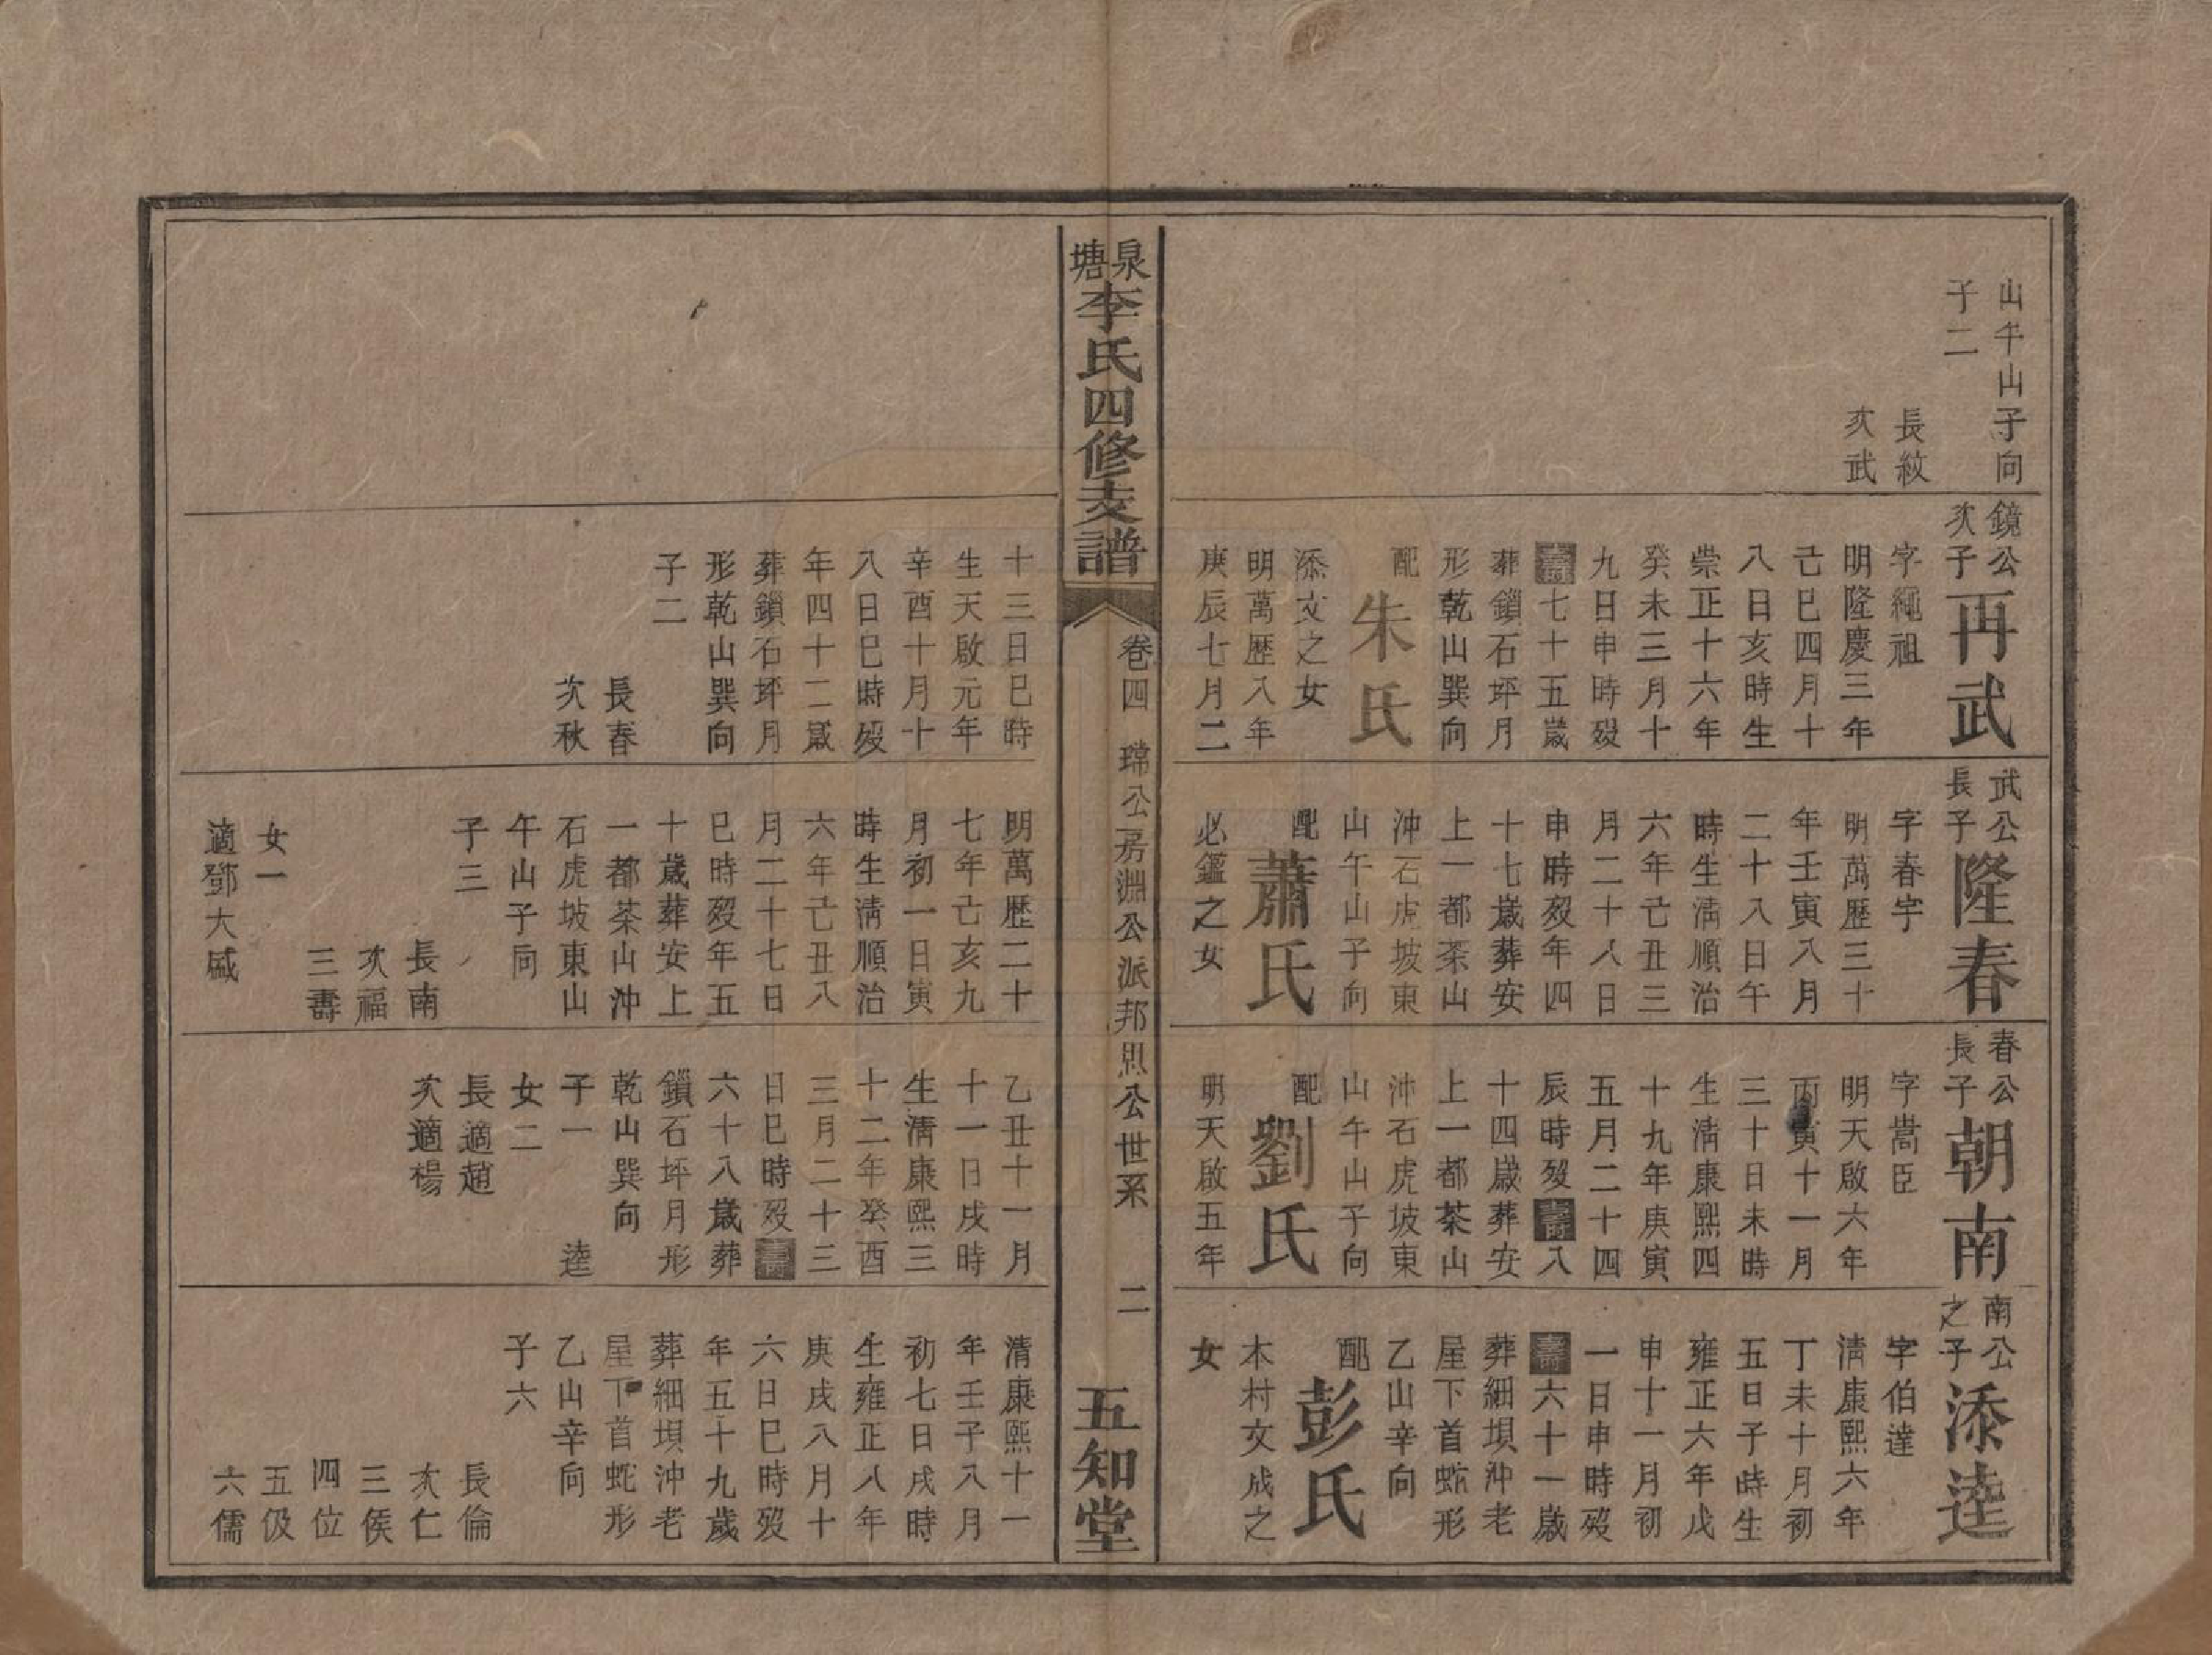 山午山子向
子二
長紋
次武
鏡公
次子
再武
字繩祖
明隆慶三年
己巳四月十
八日亥時生
崇正十六年
癸未三月十
九日申時歿
壽七十五歲
葬鎖石坪月
形乾山巽向
配
朱氏
添文之女
明萬歷八年
庚辰七月二
十三日巳時
生天啟元年
辛酉十月十
八日巳時歿
年四十二歲
葬鎖石坪月
形乾山巽向
子二
長春
次秋
武公
長子
隆春
字春宇
明萬歷三十
年壬寅八月
二十八日午
時生清順治
六年己丑三
月二十八日
申時歿年四
十七歲葬安
上一都茶山
沖石虎坡東
山午山子向
配
蕭氏
必鑑之女
明萬歷二十
七年己亥九
月初一日寅
時生清順治
六年己丑八
月二十七日
巳時歿年五
十歲葬安上
一都茶山沖
石虎坡東山
午山子向
子三
長南
次福
三壽
女一
適鄧大
春公
長子
朝南
字嵩臣
明天啟六年
丙寅十一月
三十日未時
生清康熙四
十九年庚寅
五月二十四
辰時歿壽八
十四歲葬安
上一都茶山
沖石虎坡東
山午山子向
配
劉氏
明天啟五年
乙丑十一月
十一日戌時
生清康熙三
十二年癸酉
三月二十三
日巳時歿壽
六十八歲葬
鎖石坪月形
乾山巽向
子一
逵
女二
長適趙
次適楊
南公
之子
添逵
字伯達
清康熙六年
丁未十月初
五日子時生
雍正六年戊
申十一月初
一日申時歿
壽六十一歲
葬細垻沖老
屋下首蛇形
乙山辛向
配
彭氏
木村文成之
女
清康熙十一
年壬子八月
初七日戌時
生雍正八年
庚戌八月十
六日巳時歿
年五十九歲
葬細垻沖老
屋下首蛇形
乙山辛向
子六
長倫
次仁
三侯
四位
五伋
六儒
泉塘李氏四修支譜
卷四
瑺公房淵公派邦思公世系
二
五知堂